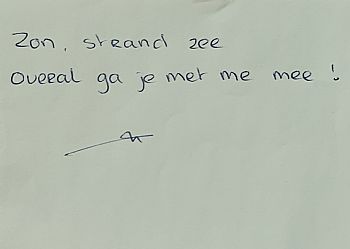 Zon, strand zee
Overal ga je met me mee !